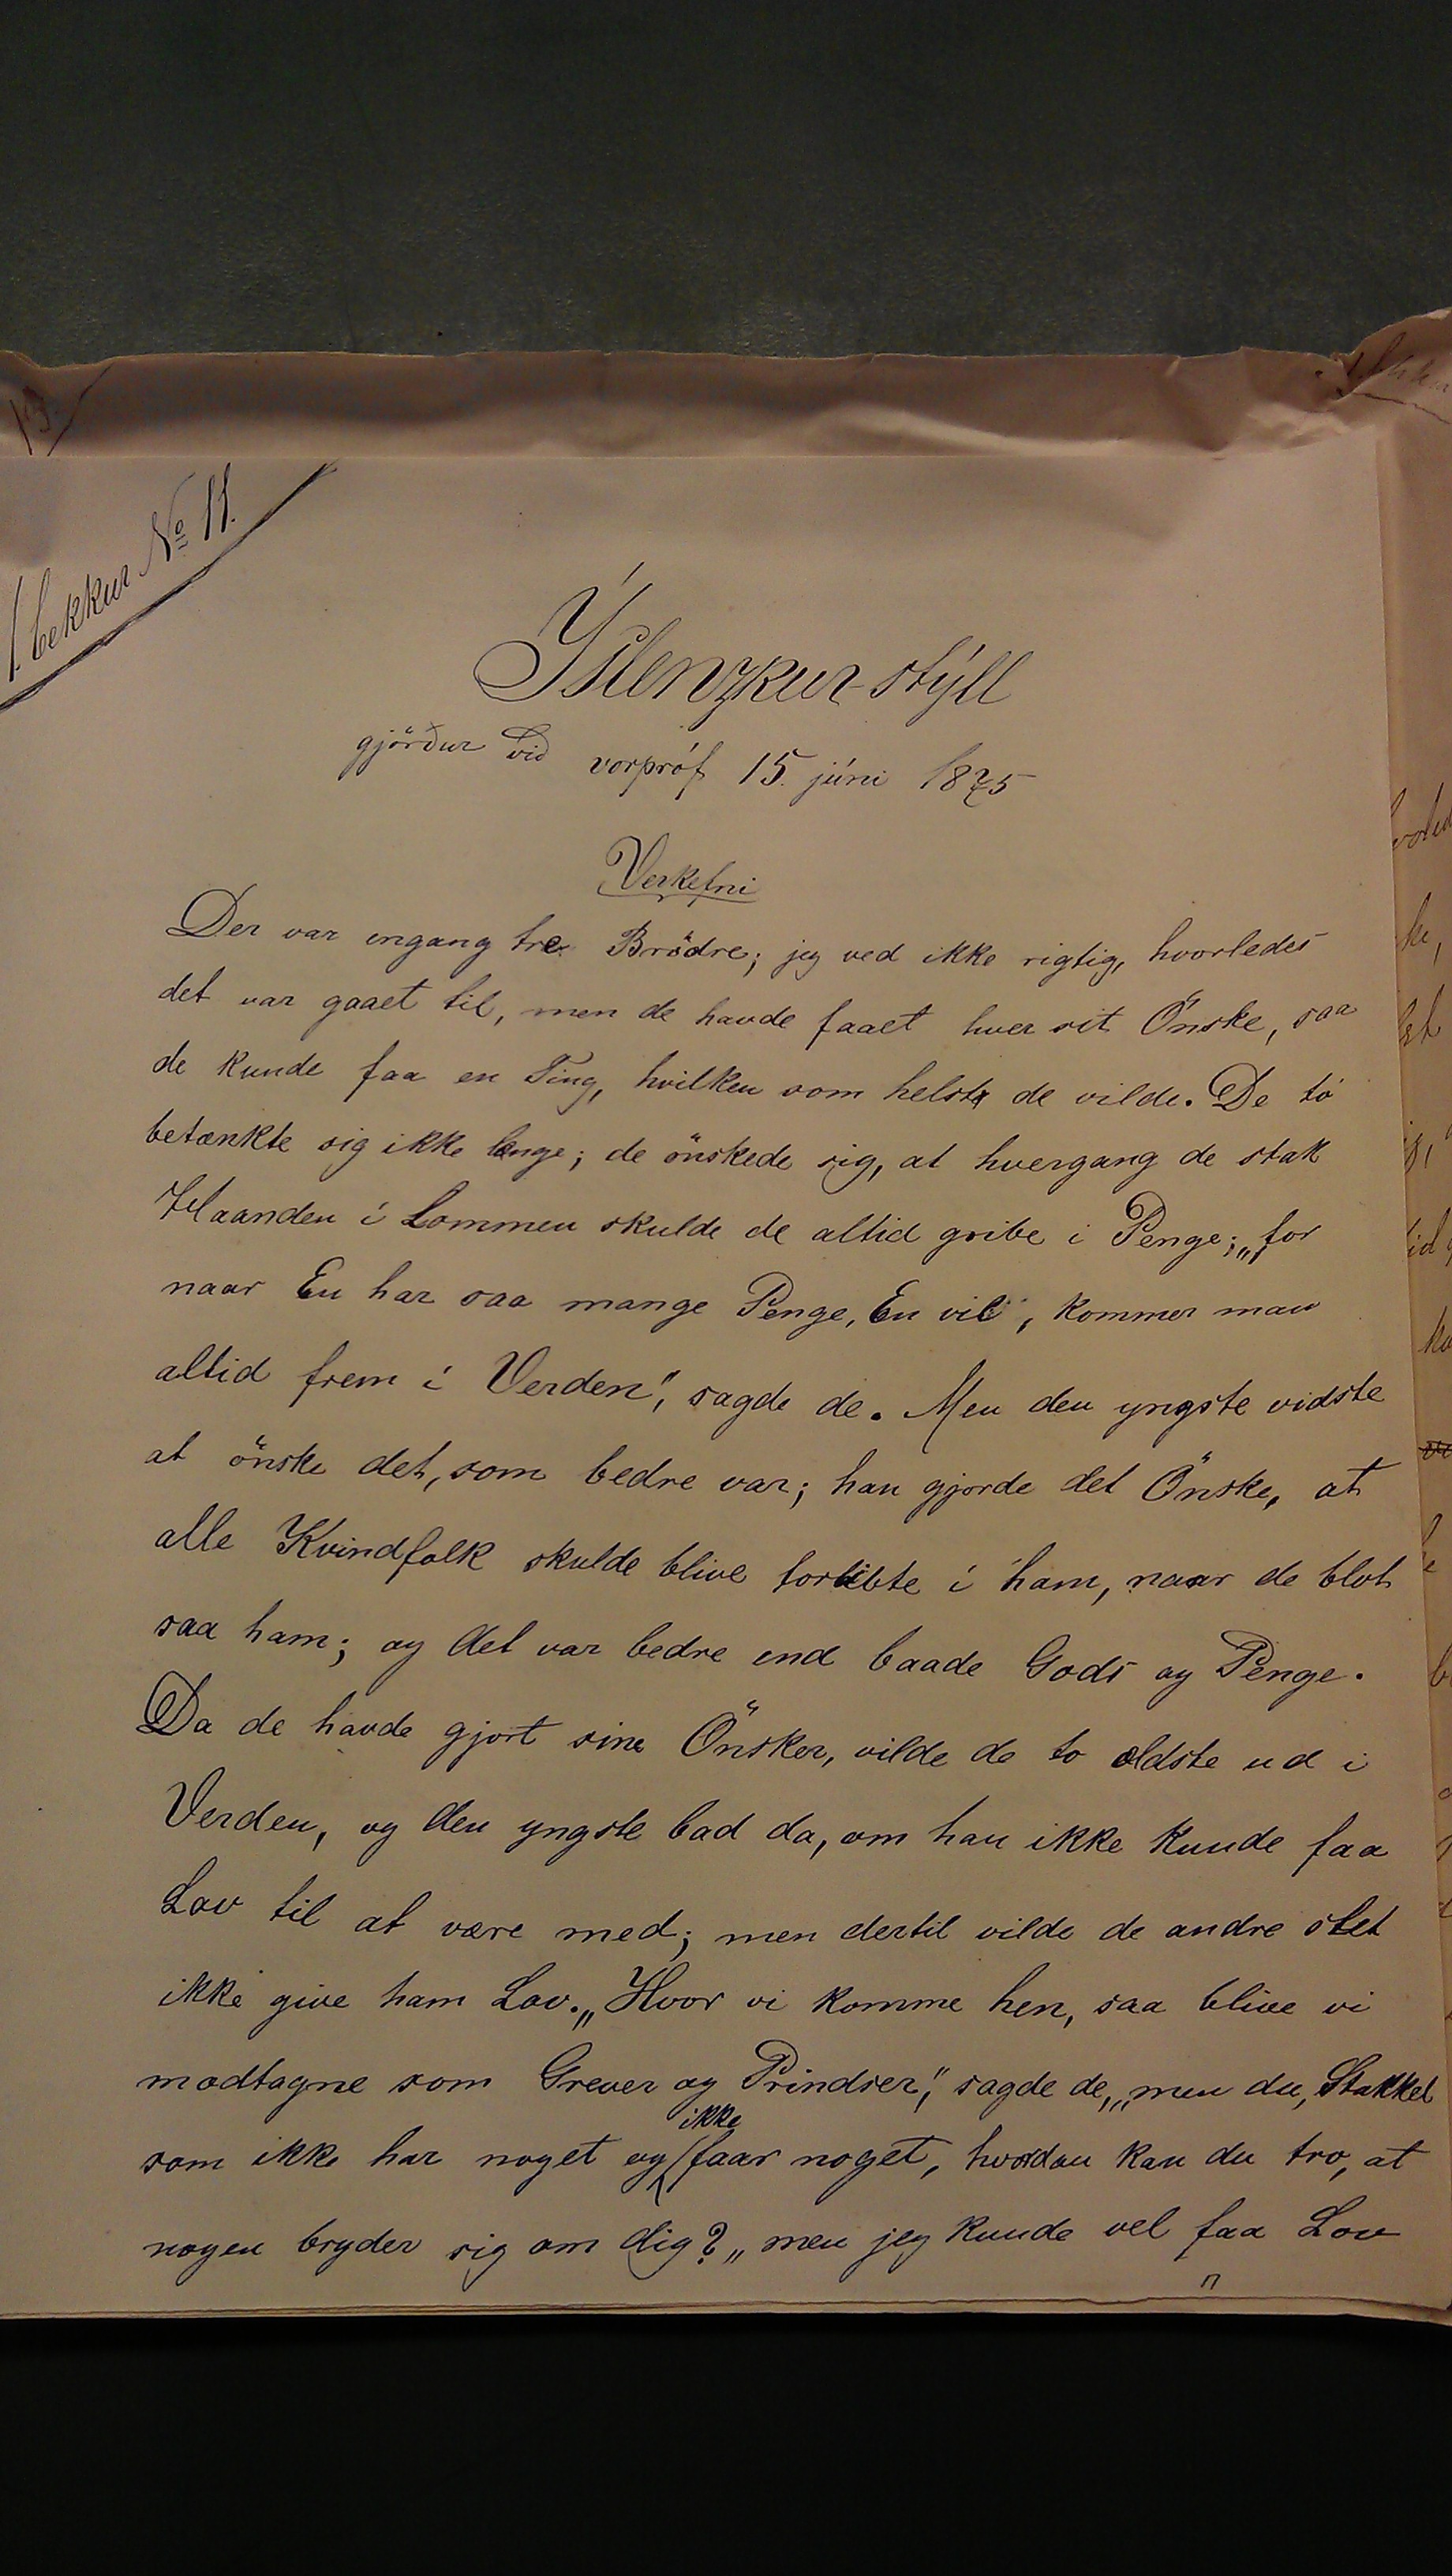 1. bekkur No 11.
Íslenzkur-stýll
gjörður við vorpróf 15. júni 1875
Verkefni
Der var engang tre Brödre; jeg ved ikke rigtig, hvorledes
det var gaaet til, men de havde faaet hver sit Önske, saa
de kunde faa en Ting, hvilken som helst de vilde. De to
betænkte sig ikke længe; de önskede sig, at hvergang de stak
Haanden i Lommen skulde de altid gribe i Penge; „for
naar En har saa mange Penge, En vil", kommer man
altid frem i Verden", sagde de. Men den yngste vidste
at önske det, som bedre var; han gjorde det Önske, at
alle Kvindfolk skulde blive forlibte i ham, naar de blot
saa ham; og det var bedre end baade Gods og Penge.
Da de havde gjort sine Önsker, vilde de to ældste ud i
Verden, og den yngste bad da, om han ikke kunde faa
Lov til at være med; men dertil vilde de andre slet
ikke give ham Lov. „Hvor vi komme hen, saa blive vi
modtagne som Grever og Prindser", sagde de, „men du, Stakkel
som ikke har noget og ikke faar noget, hvordan kan du tro, at
nogen bryder sig om dig? „men jeg kunde vel faa Lov